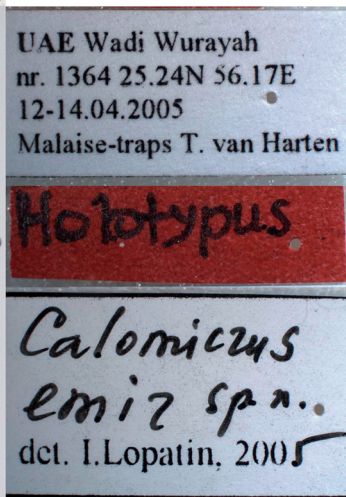 UAE Wadi Wurayah
nr. 1364 25.24N 56.17E
12-14.04.2005
Malaise-traps T. van Harten
Holotypus
Calomicrus
emir sp n.
det. I.Lopatin, 2005